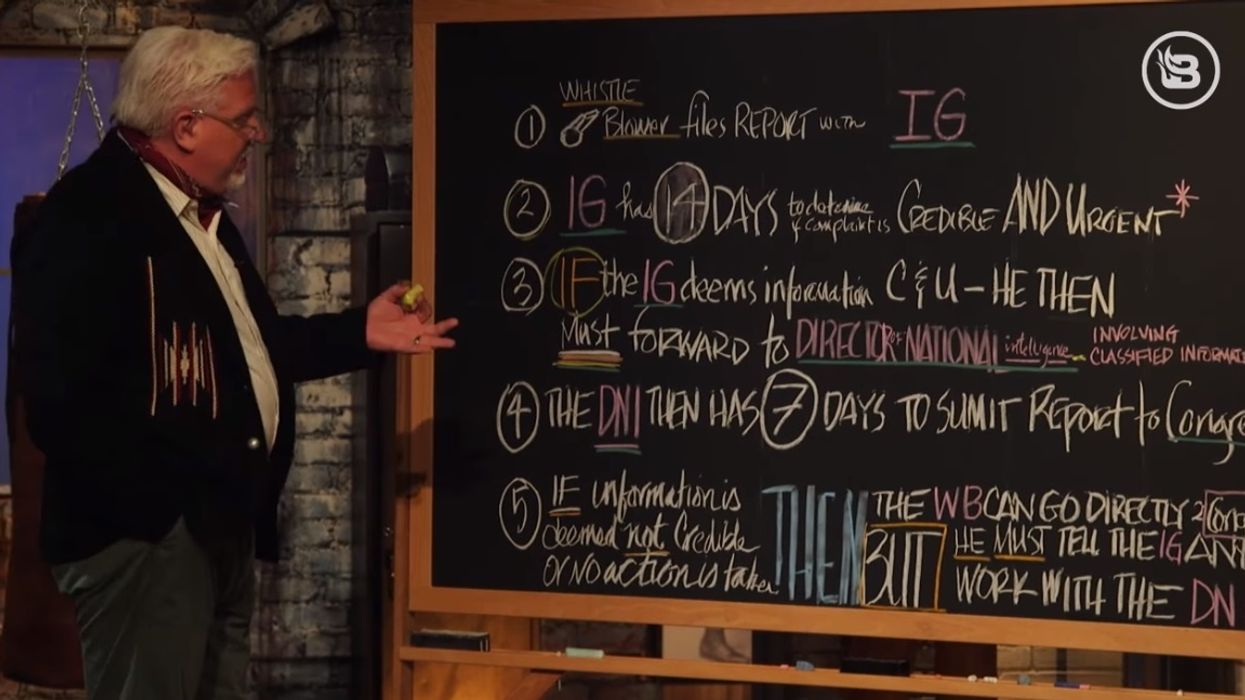 WHISTLE
① Blower files REPORT with IG
② IG has 14 DAYS to determine if complaint is CREDIBLE AND URGENT*
③ IF the IG deems information C & U – HE THEN
Must FORWARD to DIRECTOR of NATIONAL intelligence INVOLVING CLASSIFIED INFORMATI
④ THE DNI THEN HAS 7 DAYS TO SUMIT REPORT to Congre
⑤ IF information is deemed not Credible or NO action is taken THEN THE WB CAN GO DIRECTLY 2 Con
BUT HE MUST TELL THE IG AN
WORK WITH THE DN
B